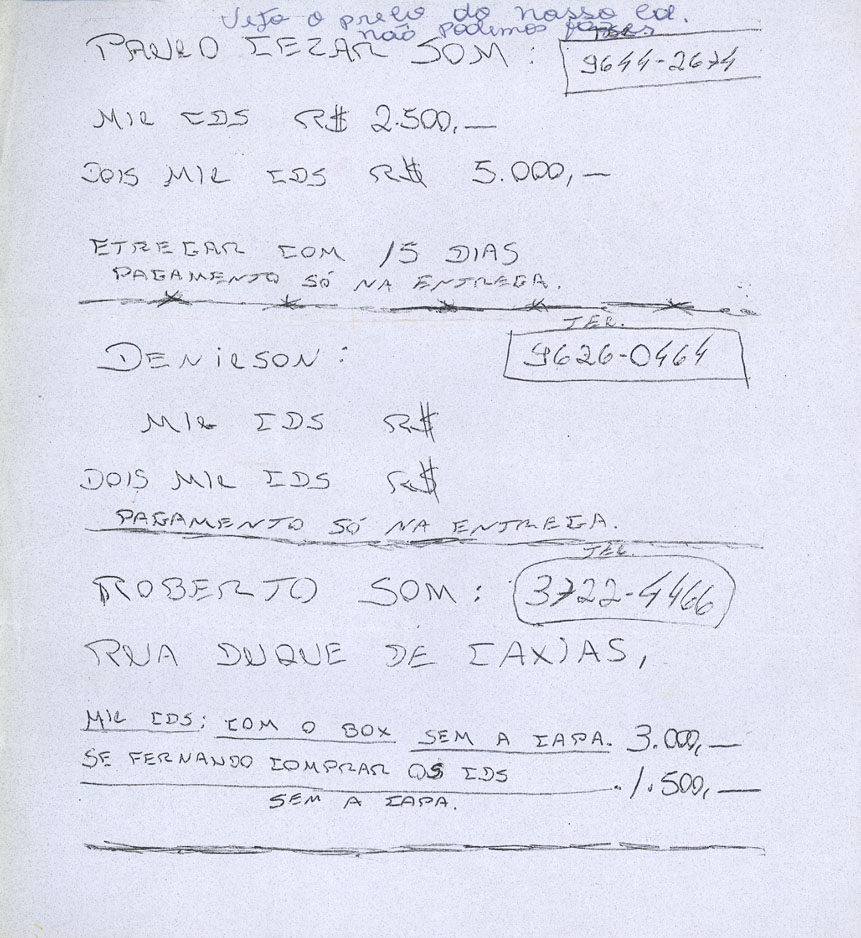 Veja o preço do nosso cd.
não podemos fazer
PAULO CEZAR SOM: TEL. 9644-2674
MIL CDS R$ 2.500,—
DOIS MIL CDS R$ 5.000,—
ETREGAR COM 15 DIAS
PAGAMENTO SÓ NA ENTREGA.
TEL.
DENILSON: 9626-0464
MIL CDS R$
DOIS MIL CDS R$
PAGAMENTO SÓ NA ENTREGA.
TEL.
ROBERTO SOM: 3722-4466
RUA DUQUE DE CAXIAS,
MIL CDS; COM O BOX SEM A CAPA. 3.000,—
SE FERNANDO COMPRAR OS CDS . 1.500,—
SEM A CAPA.